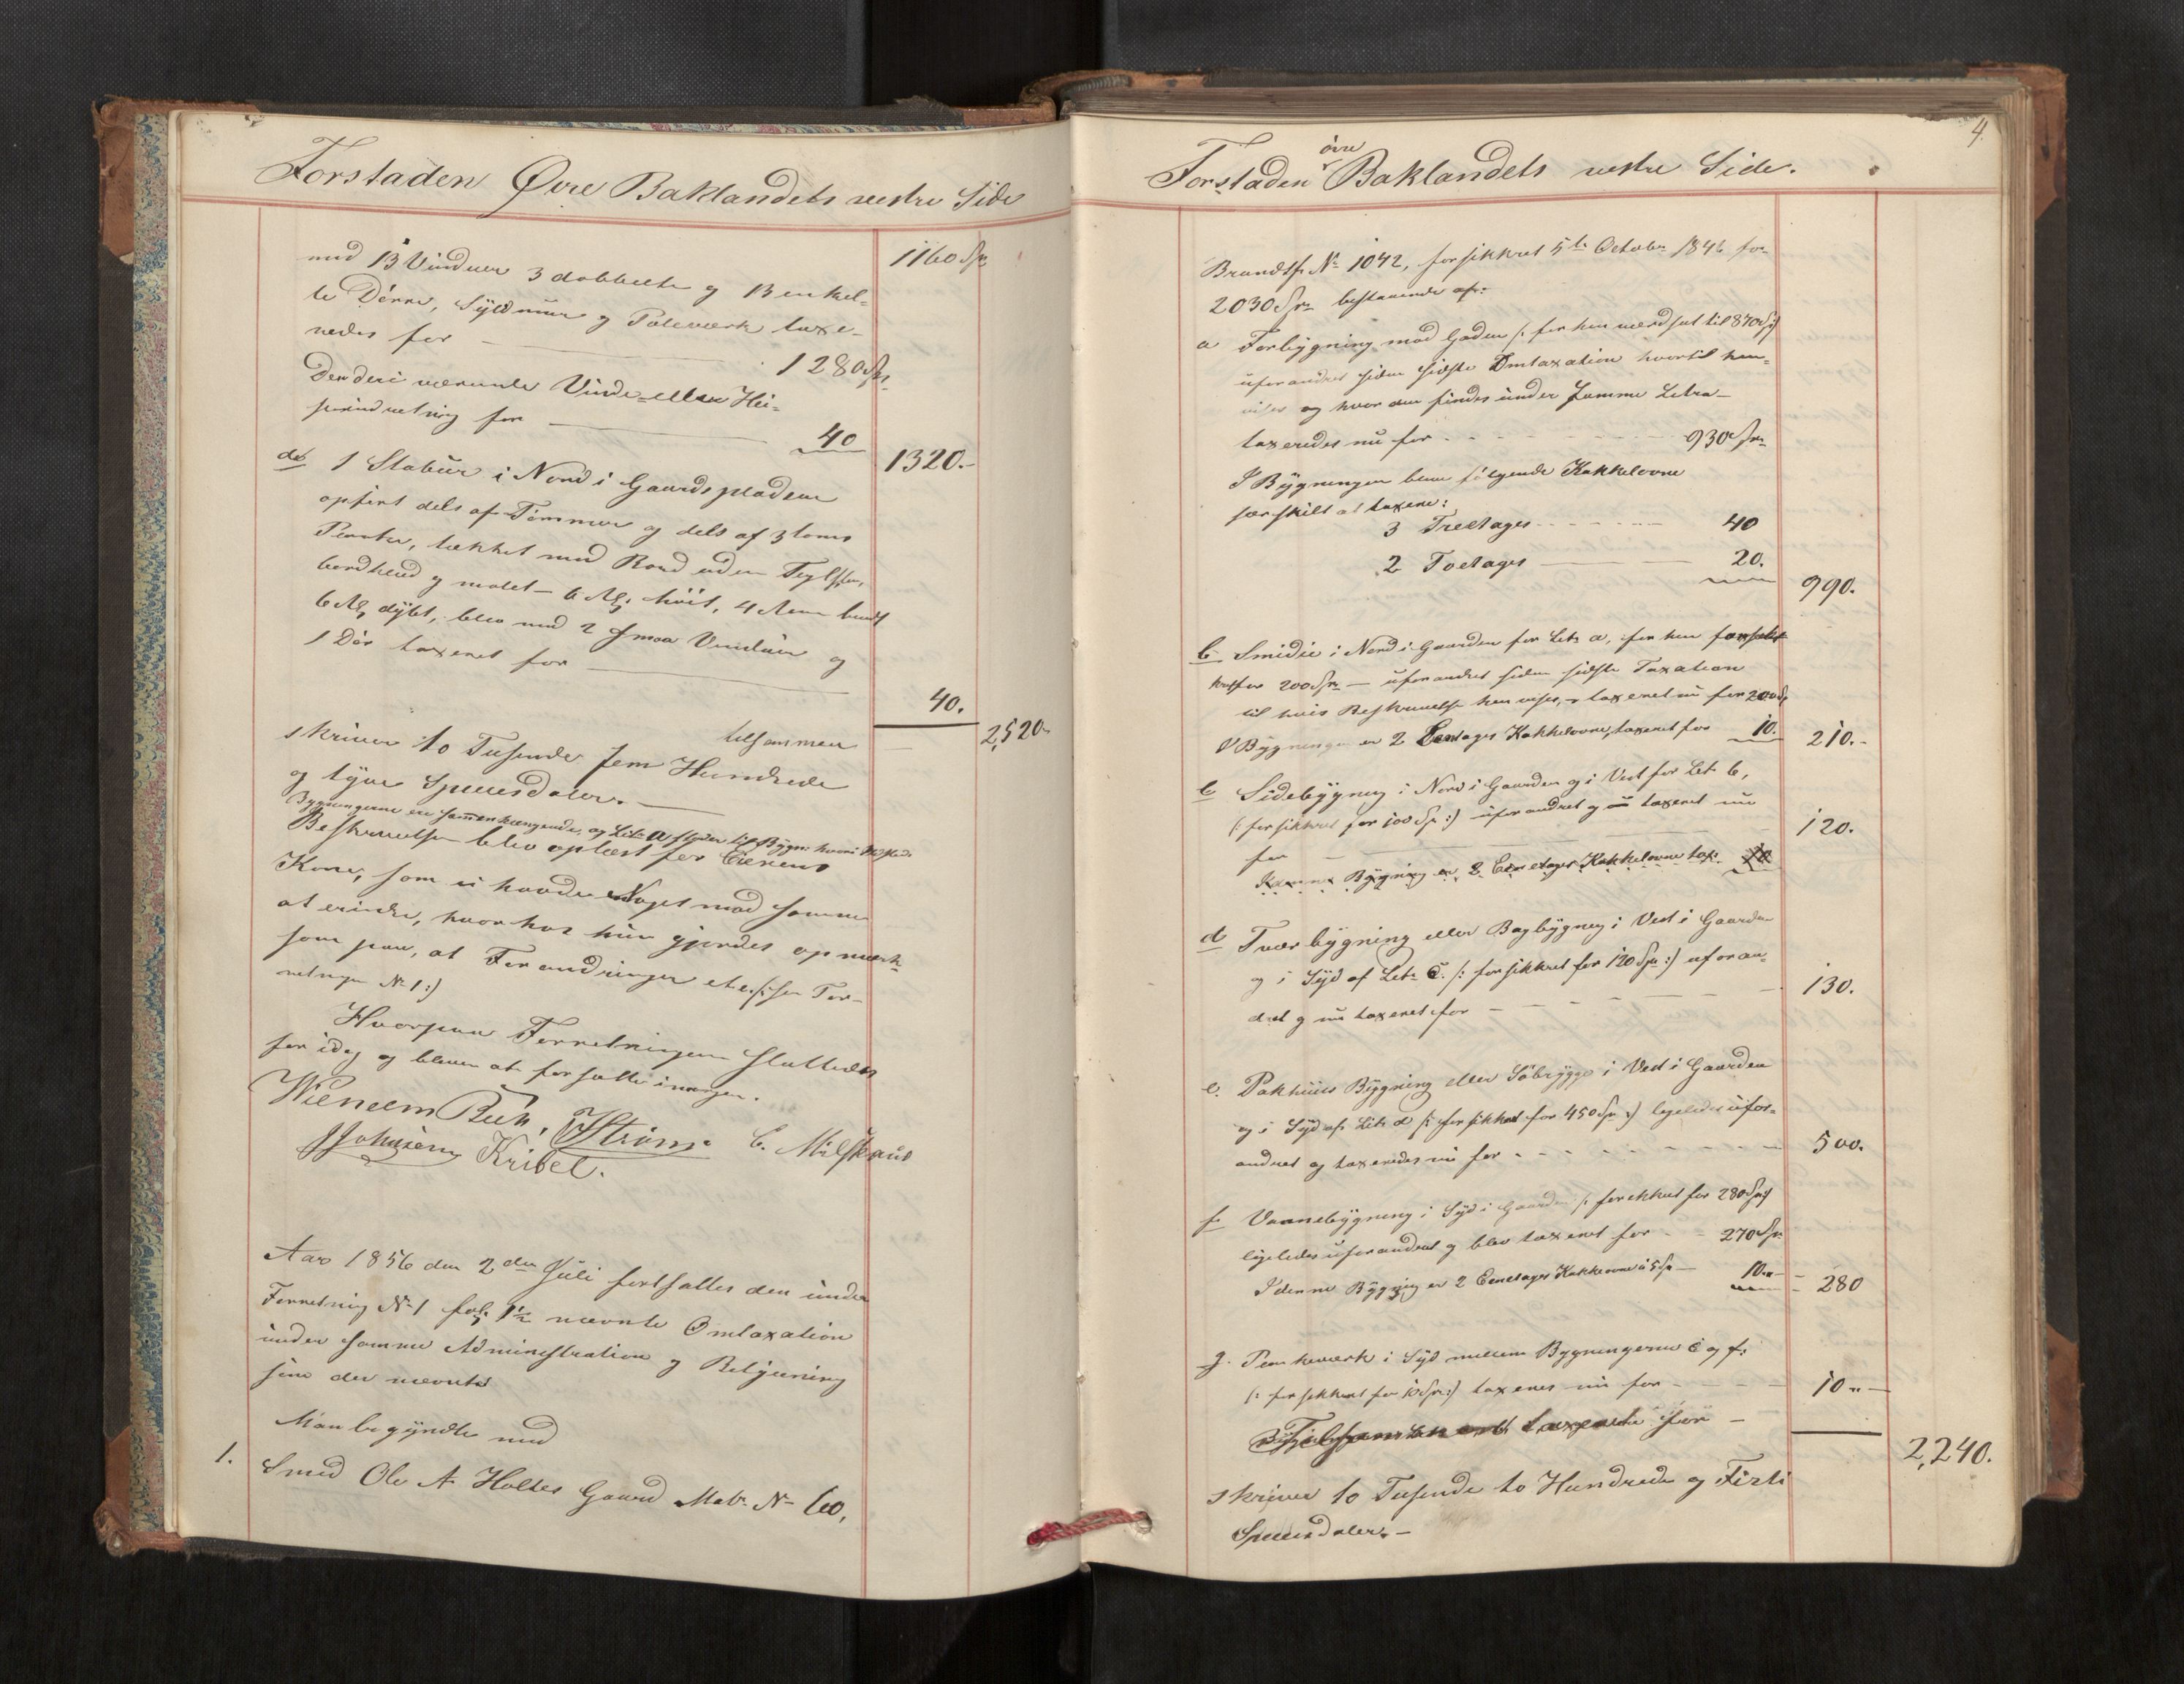 Forstaden Øvre Baklandets vestre Side
1160 Sp
med 13 Vinduer 3 dobbelte og 13 enkel-
te Dörre, Syldmuur og Pæleværk taxe-
redes for — 1280 Sp.
Den deri værende Vinde- eller Hei-
seindretning for — 40
1320.-
d 1 Stabur i Nord i Gaardspladsen
opført dels af Tømmer og dels af 3 toms
Planker, tækket med Bord uden Teglsten,
bordklæd og malet - 6 Al. höit, 4 Alen bredt
6 Al. dybt, blev med 2 smaa Vinduer og
1 Dör taxeret for —
40.
tilsammen 2,520-
skriver to Tusende fem Hundrede
og tyve Speciesdaler. —
Bygningerne ere sammenhængende, og Litr a støder til Bygn: hvori Ildsted
Beskrivelsen blev oplæst for Eierens
Kone, som ei havde Noget mod samme
at erindre, hvorhos hun gjordes opmærk-
som paa, at Forandringer etc. /: see For-
retningen No 1 :/
Hvorpaa Forretningen sluttedes
for idag og bliver at forsætte imorgen.
Wilhelm Buch, Strøm. C. Milstand
J Johnsen Kribel.
Aar 1856 den 2den Juli fortsattes den under
Forretning No 1 fol. 1½ nævnte Omtaxation
under samme Administration og Betjening
som der nævnt
Man begyndte med
1. Smed Ole A Holtes Gaard Matr. No 60,
4
Forstaden övre Baklandets vestre Side.
Brandtf. No 1042, forsikkret 5te October 1846 for
2030 Sp bestaaende af:
a Forbygning mod Gaden /: forhen værdsat til 870 Sp :/
uforandret siden sidste Omtaxation hvortil hen-
vises og hvor den findes under samme Litra -
taxeredes nu for - - - 930 Sp
I Bygningen blev følgende Kakkelovne
særskilt at taxere:
3 Treetages - - - 40
2 Toetages — 20.
990.
b Smidie i Nord i Gaarden for Litr a, forhen forsik-
kret for 200 Sp - uforandret siden sidste Taxation
til hvis Beskrivelse henvises, - taxeret nu for 200 Sp
I Bygningen er 2 Eenetages Kakkelovne, taxeret for 10.
210.-
c Sidebygning i Nord i Gaarden og i Vest for Litr b,
/: forsikkret for 100 Sp :/ uforandret og taxeret nu
for —
120.
I denne Bygning er 2 Eenetages Kakkelovne tax. 10
d Tværbygning eller Bagbygning i Vest i Gaarden
og i Syd af Litr C. /: forsikkret for 120 Sp :/ uforan-
dret og nu taxeret for - - -
130.
e. Pakhuus Bygning eller Söbrygge i Vest i Gaarden
og i Syd af Litr d /: forsikkret for 450 Sp :/ ligeledes ufor-
andret og taxeredes nu for - - -
500.
f Vaanebygning i Syd i Gaarden /: forsikkret for 280 Sp :/
ligeledes uforandret og blev taxeret for - - 270 Sp
I denne Bygning er 2 Eenetages Kakkelovne à 5 Sp — 10 " -
280
g. Plankeværk i Syd mellem Bygningerne e og f:
/: forsikkret for 10 Sp :/ taxeres nu for - - -
10 " -
Tilsammen taxerte for -
2,240.
skriver to Tusende to Hundrede og Firti
Speciesdaler. -